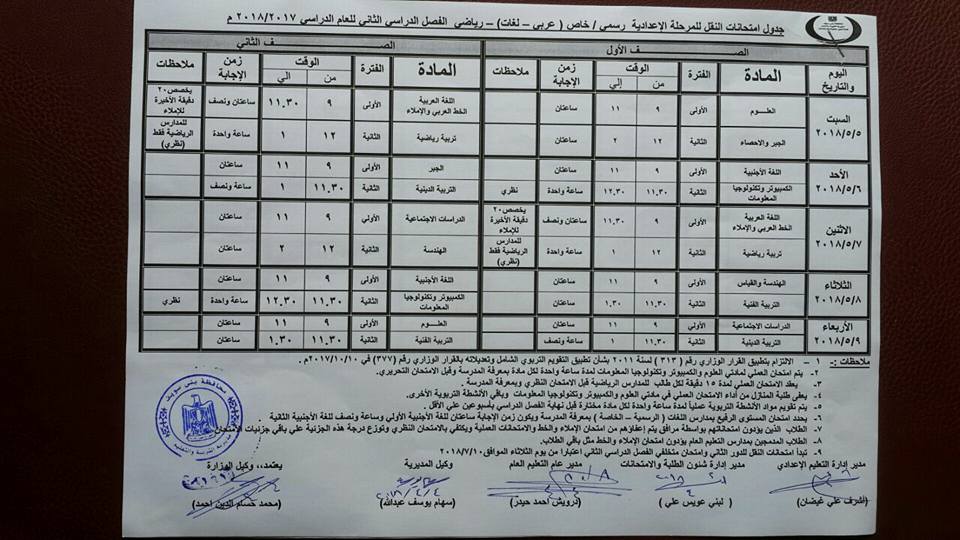 جدول امتحانات النقل للمرحلة الإعدادية رسمي / خاص ( عربي – لغات) – رياضي الفصل الدراسي الثاني للعام الدراسي ٢٠١٨/٢٠١٧ م
الصف الأول الصف الثاني
اليوم والتاريخ المادة الفترة الوقت من إلى زمن الإجابة ملاحظات المادة الفترة الوقت من إلي زمن الإجابة ملاحظات
السبت ٢٠١٨/٥/٥ العلوم الأولى ٩ ١١ ساعتان اللغة العربية الخط العربي والإملاء الأولى ٩ ١١,٣٠ ساعتان ونصف يخصص ٢٠ دقيقة الأخيرة للإملاء
الجبر والاحصاء الثانية ١٢ ٢ ساعتان تربية رياضية الثانية ١٢ ١ ساعة واحدة للمدارس الرياضية فقط (نظري)
الأحد ٢٠١٨/٥/٦ اللغة الأجنبية الأولى ٩ ١١ ساعتان الجبر الأولى ٩ ١١ ساعتان
الكمبيوتر وتكنولوجيا المعلومات الثانية ١١,٣٠ ١٢,٣٠ ساعة واحدة نظري التربية الدينية الثانية ١١,٣٠ ١ ساعة ونصف
الاثنين ٢٠١٨/٥/٧ اللغة العربية الخط العربي والإملاء الأولي ٩ ١١,٣٠ ساعتان ونصف يخصص ٢٠ دقيقة الأخيرة للإملاء الدراسات الاجتماعية الأولي ٩ ١١ ساعتان
تربية رياضية الثانية ١٢ ١ ساعة واحدة للمدارس الرياضية فقط (نظري) الهندسة الثانية ١٢ ٢ ساعتان
الثلاثاء ٢٠١٨/٥/٨ الهندسة والقياس الأولى ٩ ١١ ساعتان اللغة الأجنبية الأولى ٩ ١١ ساعتان
التربية الفنية الثانية ١١,٣٠ ١,٣٠ ساعتان الكمبيوتر وتكنولوجيا المعلومات الثانية ١١,٣٠ ١٢,٣٠ ساعة واحدة نظري
الأربعاء ٢٠١٨/٥/٩ الدراسات الاجتماعية الأولى ٩ ١١ ساعتان العلوم الأولى ٩ ١١ ساعتان
التربية الدينية الثانية ١١,٣٠ ١ ساعة ونصف التربية الفنية الثانية ١١,٣٠ ١,٣٠ ساعتان
ملاحظات :- ١ – الالتزام بتطبيق القرار الوزاري رقم ( ٣١٣ ) لسنة ٢٠١١ بشأن تطبيق التقويم التربوي الشامل وتعديلاته بالقرار الوزاري رقم (٣٧٧) في ٢٠١٧/١٠/١٠م.
٢- يتم امتحان العملي لمادتي العلوم والكمبيوتر وتكنولوجيا المعلومات لمدة ساعة واحدة لكل مادة بمعرفة المدرسة وقبل الامتحان التحريري.
٣- يعقد الامتحان العملي لمدة ١٥ دقيقة لكل طالب للمدارس الرياضية قبل الامتحان النظري وبمعرفة المدرسة .
٤- يعفى طلبة المنازل من أداء الامتحان العملي في مادتي العلوم والكمبيوتر وتكنولوجيا المعلومات وباقي الأنشطة التربوية الأخرى.
٥- يتم تقويم مواد الأنشطة التربوية عملياً لمدة ساعة واحدة لكل مادة مختارة قبل نهاية الفصل الدراسي بأسبوعين علي الأقل .
٦- يحدد امتحان المستوي الرفيع بمدارس اللغات ( الرسمية – الخاصة ) بمعرفة المدرسة ويكون زمن الإجابة ساعتان للغة الأجنبية الأولي وساعة ونصف للغة الأجنبية الثانية .
٧- الطلاب الذين يؤدون امتحاناتهم بواسطة مرافق يتم إعفاؤهم من امتحان الإملاء والخط والامتحانات العملية ويكتفي بالامتحان النظري وتوزع درجة هذه الجزئية علي باقي جزئيات الامتحان
٨- الطلاب المدمجين بمدارس التعليم العام يؤدون امتحان الإملاء والخط مثل باقي الطلاب.
٩- تبدأ امتحانات النقل للدور الثاني وامتحان متخلفي الفصل الدراسي الثاني اعتبارا من يوم الثلاثاء الموافق ٢٠١٨/٧/١٠م
مدير إدارة التعليم الإعدادي مدير إدارة شئون الطلبة والامتحانات مدير عام التعليم العام وكيل المديرية يعتمد،، وكيل الوزارة
(أشرف علي غيضان) (لبني عويس علي ) (درويش احمد حيدر) (سهام يوسف عبدالله) (محمد حسام الدين احمد)
محافظة بنى سويف